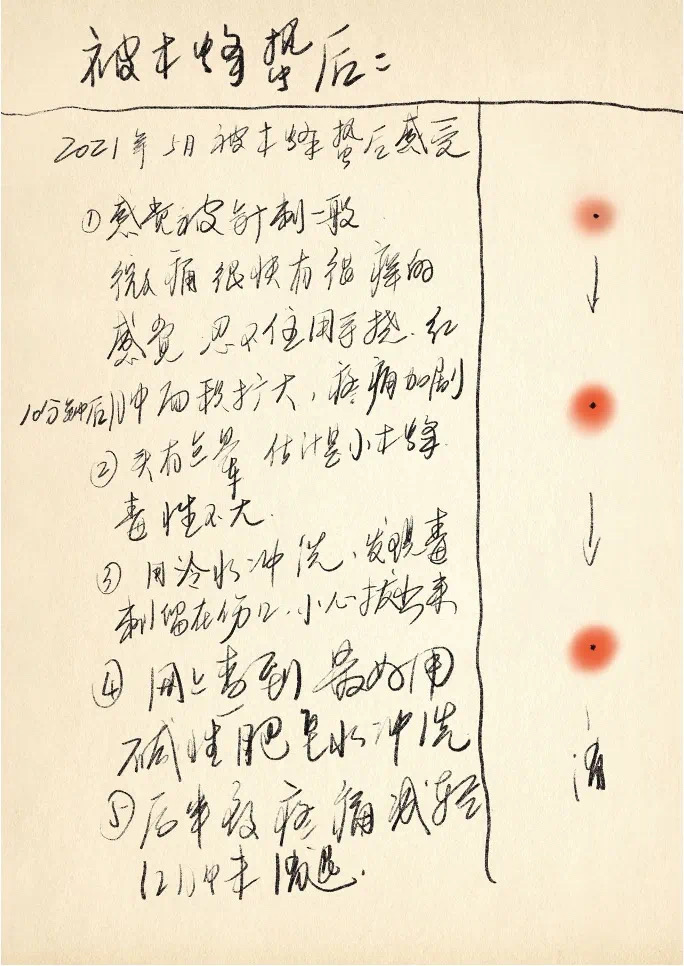 被木蜂蛰后:
2021年5月被木蜂蛰后感受
①感觉被针刺一般
微痛很快有很痒的
感觉 忍不住用手挠.红
10分钟后肿面积扩大,疼痛加剧
②头有点晕 估计是小木蜂
毒性不大.
③用冷水冲洗,发现毒
刺留在伤口,小心拔出来
④用上查到 最好用
碱性肥皂水冲洗
⑤后半夜疼痛减轻
红肿未消退.
消